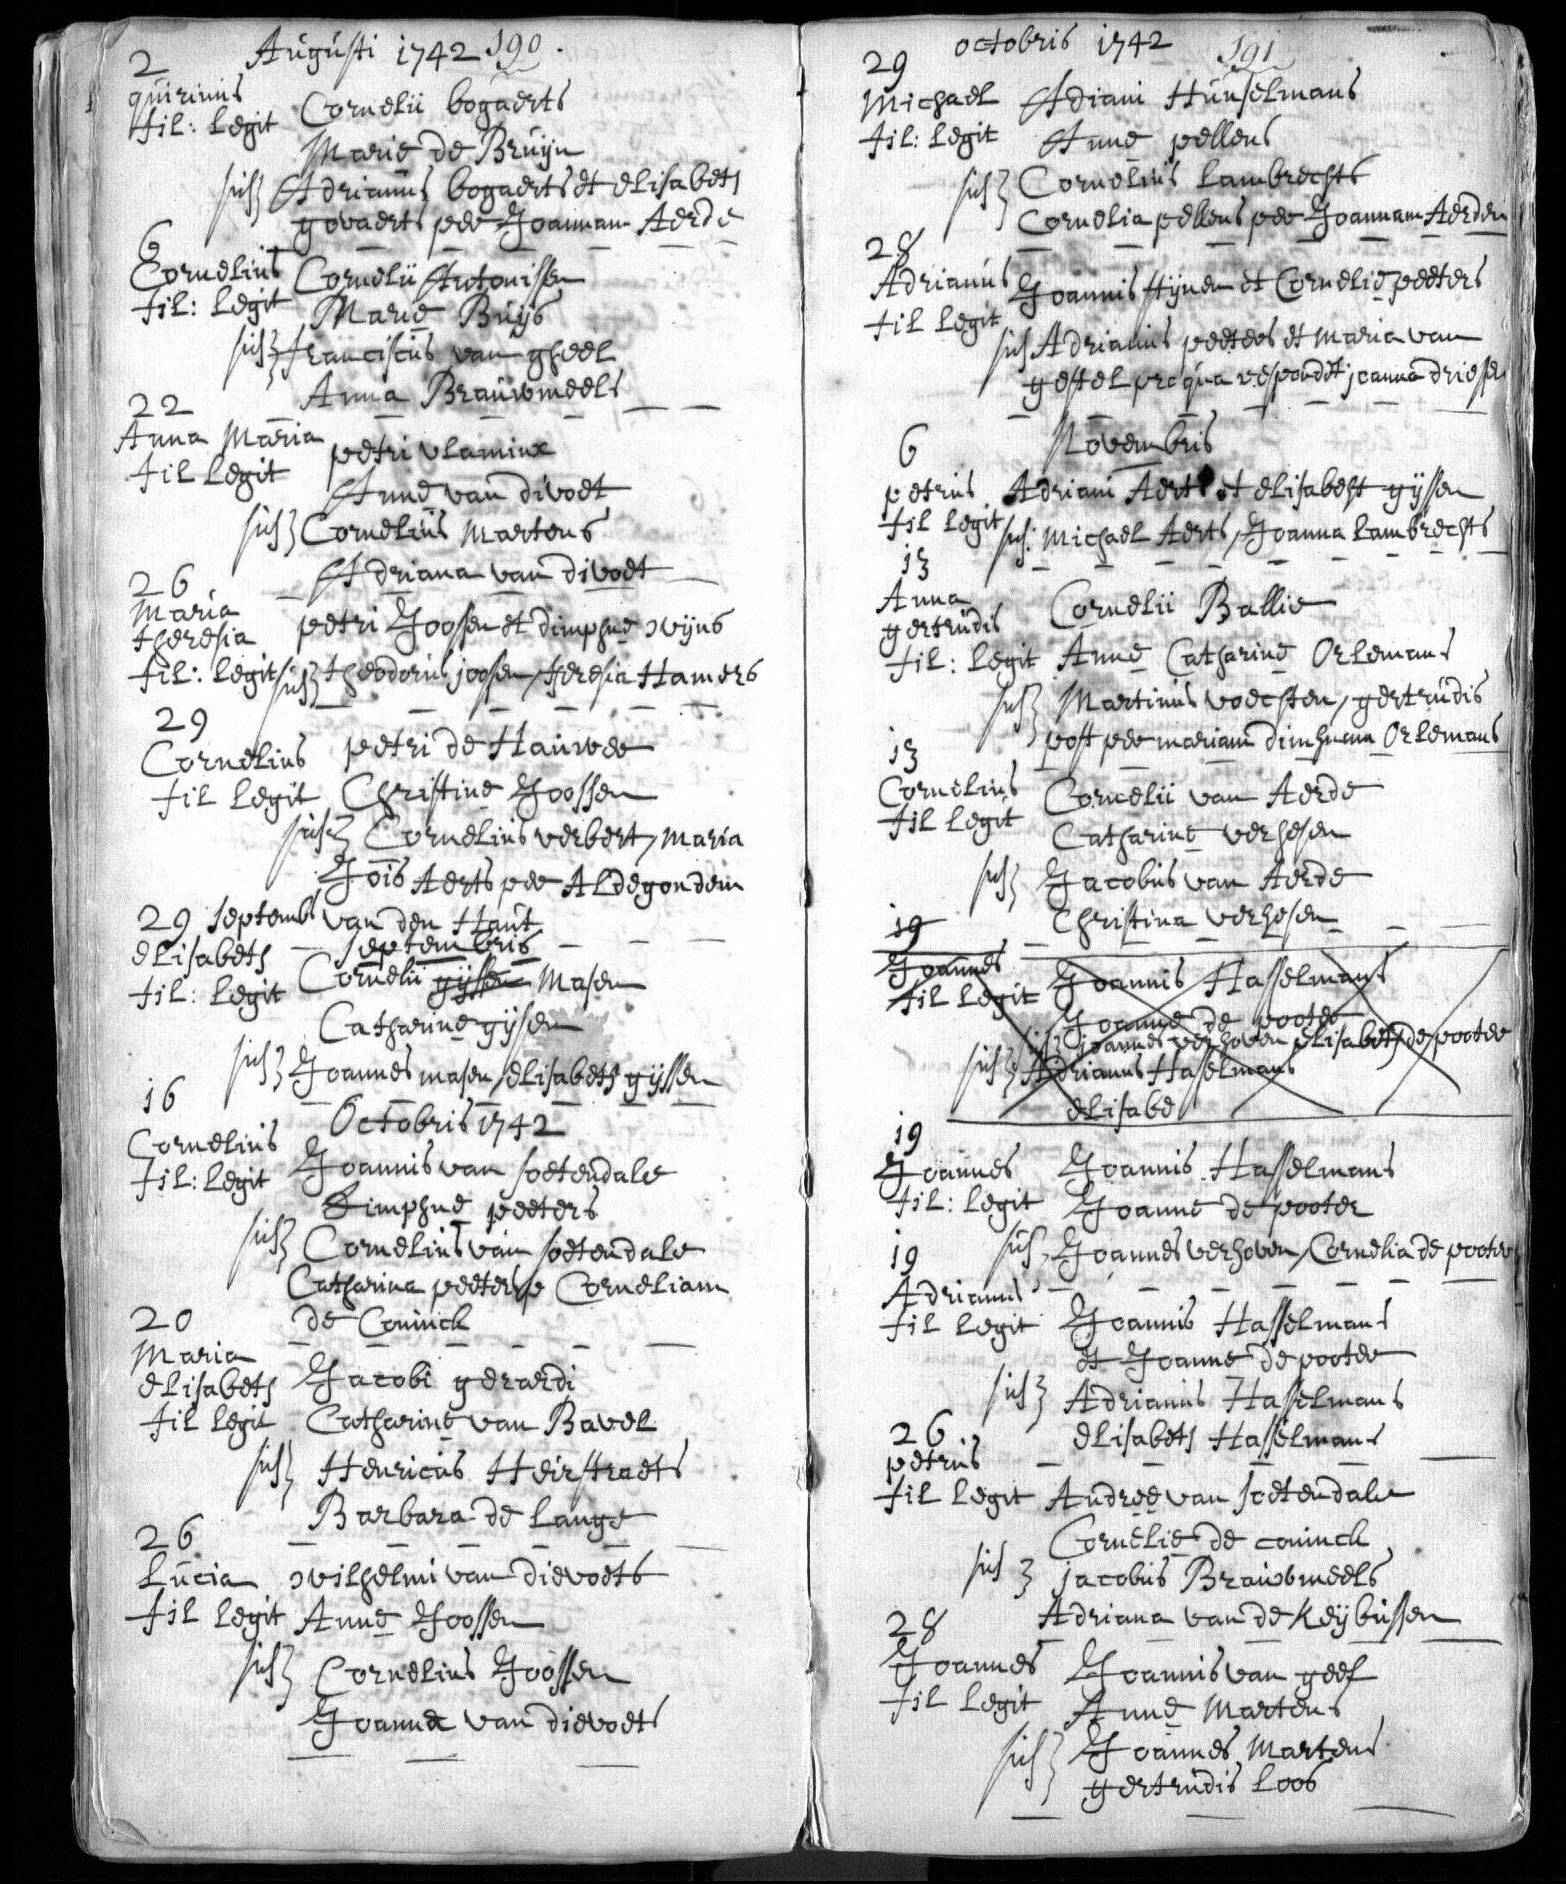 Augusti 1742 190.
2
quirinus
fil: legit Cornelii bogaerts
Marie de Bruijn
sus} Adrianus bogaerts et elisabeth
govaerts per Joannam Aerde
6
Cornelius Cornelii Antonissen
fil: legit Marie Buijs
sus} franciscus van gheel
Anna Brauwmeels
22
Anna Maria petri vlaminx
fil legit Anne van divoet
sus} Cornelius Martens
Adriana van divoet
26
Maria
theresia petri Joossen et dimphne wijns
fil: legit sus} theodorus joosen, teresia Hamers
29
Cornelius petri de Hauwer
fil legit Christine Joossen
sus} Cornelius verbert, maria
Jois Aerts per Aldegondem
van den Haut
29 septembs
septembris
elisabeth
fil: legit Cornelii gijssen Masen
Catharine gijsen
sus} Joannes masen, elisabeth gijssen
16
Octobris 1742
Cornelius
fil: legit Joannis van soetendale
Dimphne peeters
sus} Cornelius van soetendale
Catharina peeters p Corneliam
de Coninck
20
Maria
elisabeth Jacobi gerardi
fil legit Catharine van Bavel
sus} Henricus Heirstraets
Barbara de Lange
26
Lucia wilhelmi van dievoets
fil legit Anne Joossen
sus} Cornelius Joossen
Joanna van dievoets
octobris 1742 191
29
Michael Adiani Hunselmans
fil: legit Anne pellens
sus} Cornelius Lambrechts
Cornelia pellens per Joannam Aerden
28
Adrianus Joannis Hijnen et Cornelie peeters
fil legit
sus Adrianus peeters et maria van
gestel pro qua respondit joanna driesen
6 Novembris
petrus Adriani Aerts et elisabeht gijssen
fil legit sus: Michael Aerts, Joanna Lambrechts
13
Anna
gertrudis Cornelii Ballie
fil: legit Anne Catharine Orlemans
sus} Martinus voechten, gertrudis
post per mariam dimhnam Orlemans
13
Cornelius Cornelii van Aerde
fil legit Catharine verhesen
sus} Jacobus van Aerde
Christina verhesen
19
Joannes Joannis Hasselmans
fil legit Joanne de pooter
sus} joannes verhoven elisabeth de pooter
sus} Adrianus Hasselmans
elisabe
19
Joannes Joannis Hasselmans
fil: legit Joanne de pooter
sus, Joannes verhoven, Cornelia de pooter
19
Adrianus
fil legit Joannis Hasselmans
et Joanne de pooter
sus} Adrianus Hasselmans
elisabeth Hasselmans
26
petrus
fil legit Andree van soetendale
Cornelie de coninck
sus} jacobus Brauwmeels
Adriana van de Keijbussen
28
Joannes Joannis van geef
fil legit Anne Martens
sus} Joannes Martens
gertrudis Loos